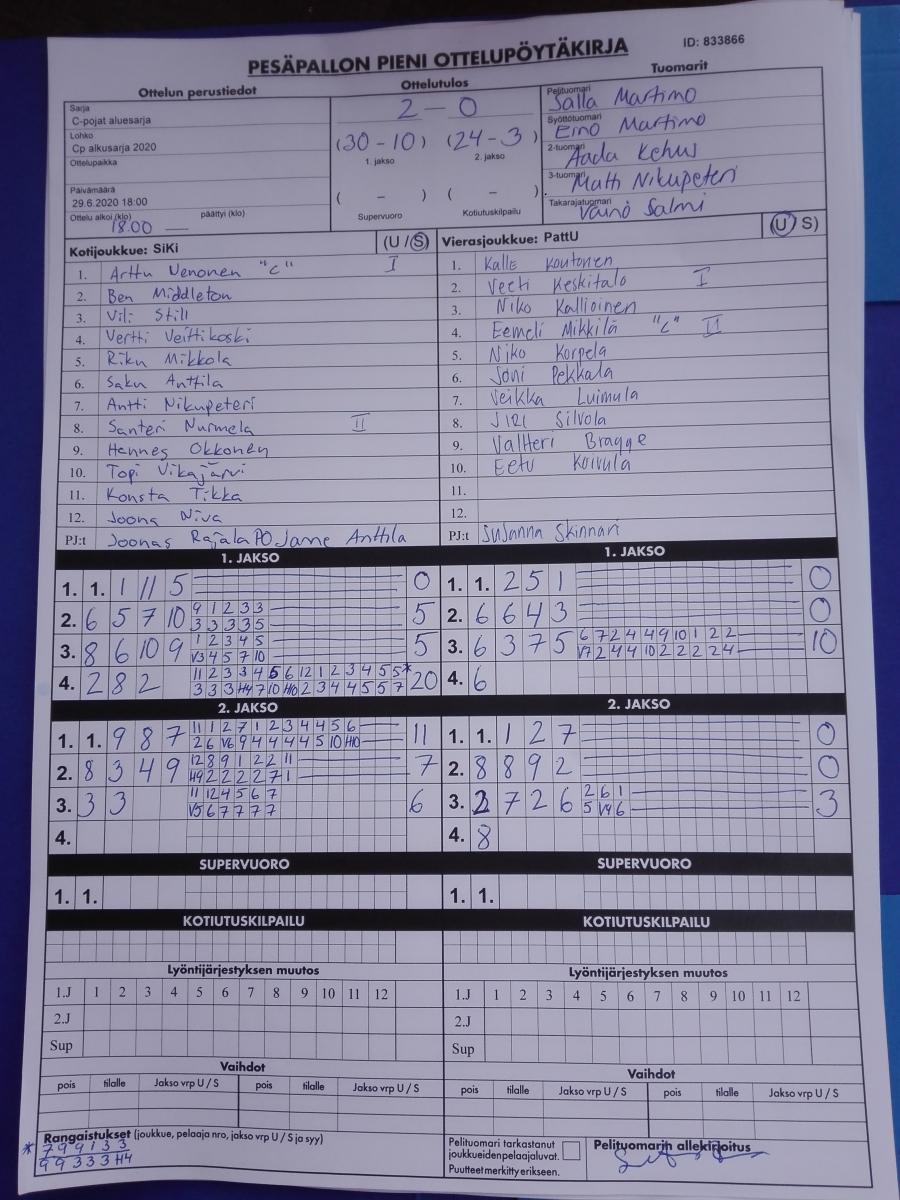 PESÄPALLON PIENI OTTELUPÖYTÄKIRJA
ID: 833866
Ottelun perustiedot
Sarja
C-pojat aluesarja
Lohko
Cp alkusarja 2020
Ottelupaikka
Päivämäärä
29.6.2020 18:00
Ottelu alkoi (klo) päättyi (klo)
18.00
Ottelutulos
2 - 0
(30 - 10) (24 - 3)
1. jakso 2. jakso
( - ) ( - )
Supervuoro Kotiutuskilpailu
Tuomarit
Pelituomari
Salla Martimo
Syöttötuomari
Eino Martimo
2-tuomari
Aada Kehus
3-tuomari
Matti Nikupeteri
Takarajatuomari
Väinö Salmi
Kotijoukkue: SiKi (U / S)
1. Arttu Venonen "C" I
2. Ben Middleton
3. Vili Still
4. Vertti Veittikoski
5. Riku Mikkola
6. Saku Anttila
7. Antti Nikupeteri
8. Santeri Nurmela II
9. Hannes Okkonen
10. Topi Vikajärvi
11. Konsta Tikka
12. Joona Niva
PJ:t Joonas Rajala PO Janne Anttila
Vierasjoukkue: PattU (U / S)
1. Kalle Koutonen
2. Veeti Keskitalo I
3. Niko Kallioinen
4. Eemeli Mikkilä "C" II
5. Niko Korpela
6. Joni Pekkala
7. Veikka Luimula
8. Jiri Silvola
9. Valtteri Bragge
10. Eetu Koivula
11.
12.
PJ:t Susanna Skinnari
1. JAKSO
1. 1. 1 11 5 0
2. 6 5 7 10 9 1 2 3 3 5
3 3 3 3 5
3. 8 6 10 9 1 2 3 4 5 5
V3 4 5 7 10
4. 2 8 2 11 2 3 3 4 5 6 12 1 2 3 4 5 5* 20
3 3 3 H4 7 10 H10 2 3 4 4 5 5 7
1. JAKSO
1. 1. 2 5 1 0
2. 6 6 4 3 0
3. 6 3 7 5 6 7 2 4 4 9 10 1 2 2 10
V7 2 4 4 10 2 2 2 2 4
4. 6
2. JAKSO
1. 1. 9 8 7 11 1 2 7 1 2 3 4 4 5 6 11
2 6 V6 9 4 4 4 4 5 10 H10
2. 8 3 4 9 12 8 9 1 2 2 11 7
H9 2 2 2 2 7 1
3. 3 3 11 12 4 5 6 7 6
V5 6 7 7 7 7
4.
2. JAKSO
1. 1. 1 2 7 0
2. 8 8 9 2 0
3. 2 7 2 6 2 6 1 3
5 V4 6
4. 8
SUPERVUORO
1. 1.
SUPERVUORO
1. 1.
KOTIUTUSKILPAILU
KOTIUTUSKILPAILU
Lyöntijärjestyksen muutos
1.J 1 2 3 4 5 6 7 8 9 10 11 12
2.J
Sup
Lyöntijärjestyksen muutos
1.J 1 2 3 4 5 6 7 8 9 10 11 12
2.J
Sup
Vaihdot
pois tilalle Jakso vrp U / S pois tilalle Jakso vrp U / S
Vaihdot
pois tilalle Jakso vrp U / S pois tilalle Jakso vrp U / S
Rangaistukset (joukkue, pelaaja nro, jakso vrp U / S ja syy)
* 7 9 9 1 3 3
9 9 3 3 3 H4
Pelituomari tarkastanut
joukkueiden pelaajaluvat.
Puutteet merkitty erikseen.
Pelituomarin allekirjoitus